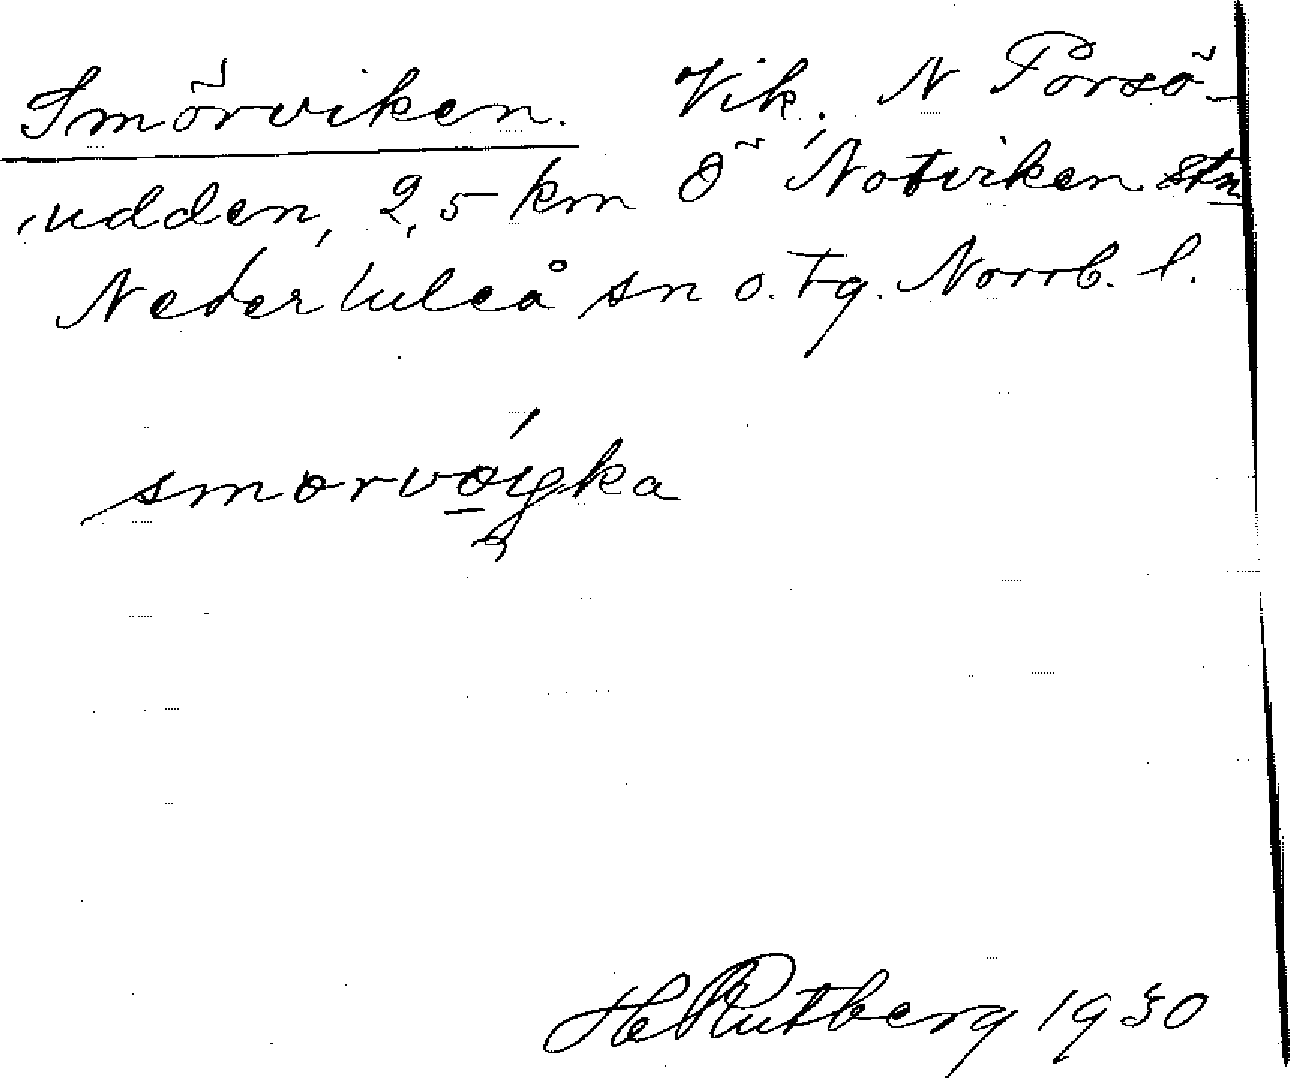 Smörviken. Vik, N Porsö-
udden, 2,5 km Ö Notviken stn
Nederluleå sn o. tg. Norrb. l.
H Rutberg 1930